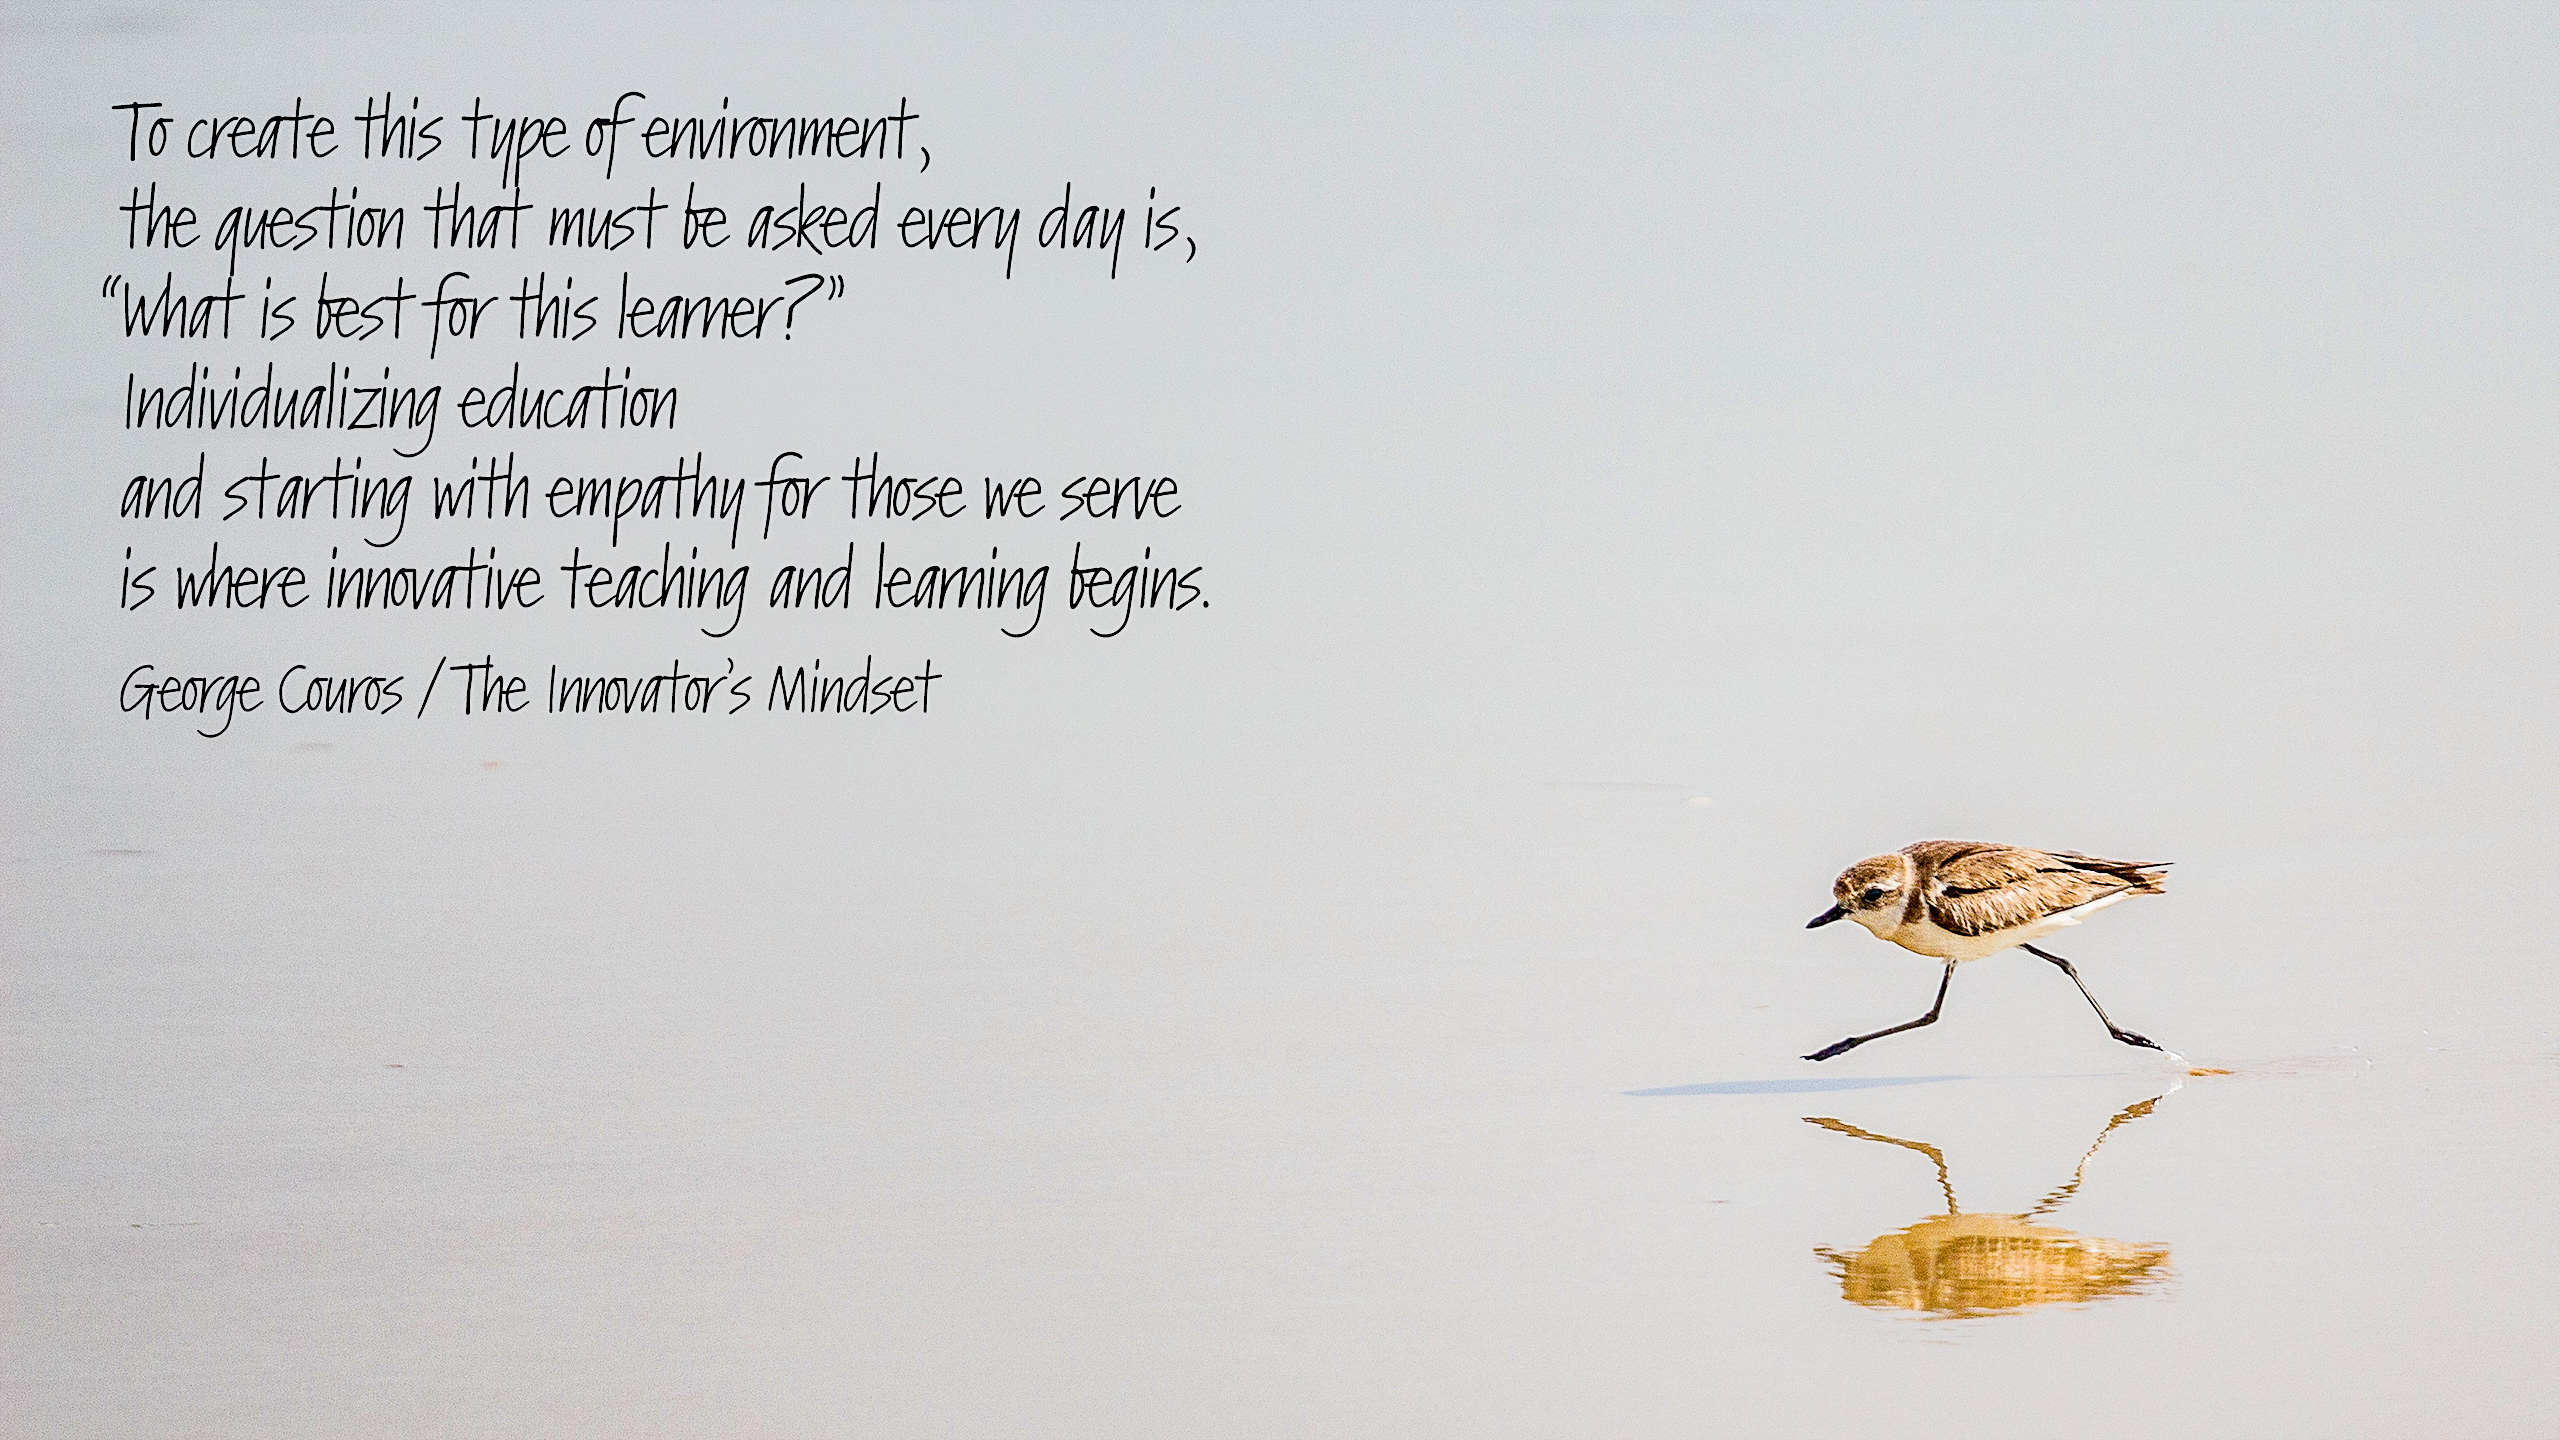 To create this type of environment,
the question that must be asked every day is,
“What is best for this learner?”
Individualizing education
and starting with empathy for those we serve
is where innovative teaching and learning begins.
George Couros / The Innovator’s Mindset